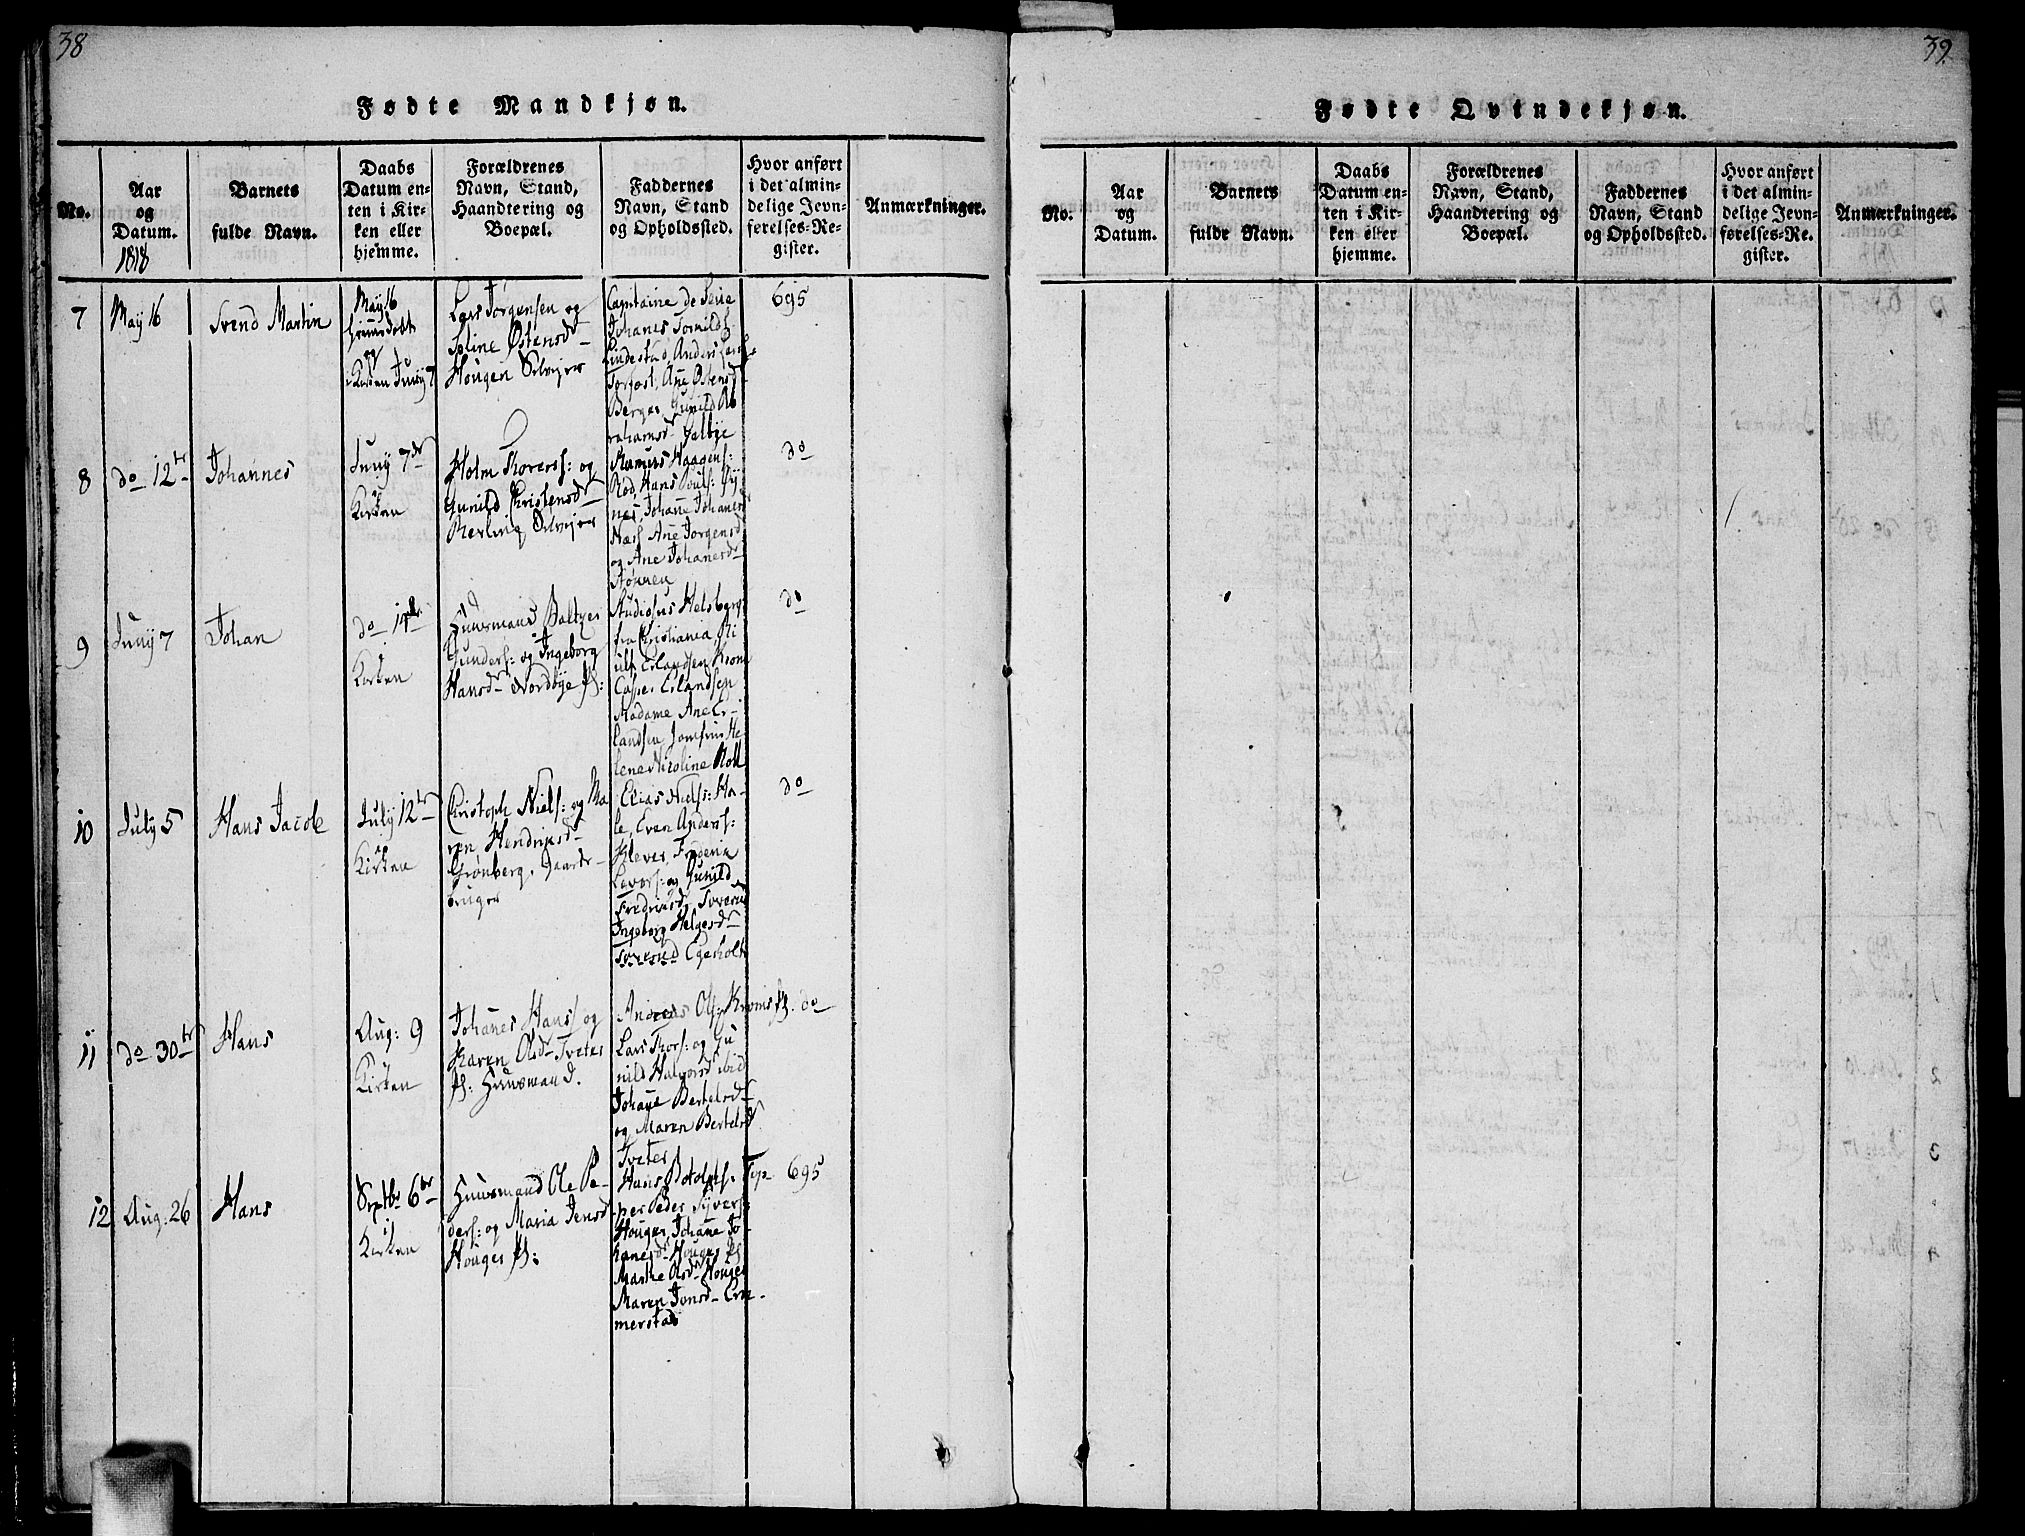 38
Fødte Mandkjøn.
No.
Aar
og
Datum.
1818
Barnets
fulde Navn.
Daabs
Datum en-
ten i Kir-
ken eller
hjemme.
Forældrenes
Navn, Stand,
Haandtering og
Boepæl.
Faddernes
Navn, Stand
og Opholdssted.
Hvor anført
i det almin-
delige Jevn-
førelses-Re-
gister.
Anmærkninger.
7
May 16
Svend Martin
May 16
hjemmedøbt
og
Kirken Juny 7
Lars Jørgensen og
Østensd
Hougen Selvejer
Capitaine de Seue
Johanes
Anders
Ane Østensd
Berger, Gunild Ab
rahamsd
695
8
do 12te
Johannes
Juny 7de
Kirken
Holm Thorers: og
Gunild Christensd
Selvejer
Haagens:
Rød, Hans Pouls:
nes, Johane Johanesd
Næs Ane Jørgensd
og Ane Johanesd
do
9
Juny 7
Johan
do 14de
Kirken
Huusmand Baltzer
Gunders: og Ingeborg
Hansd Nordbye
Studiosus Helsberg
fra Christiania
Erlandsen Krom
Casper Erlandsen
Madame Ane Er-
landsen, Jomfru He
lene Nicoline
do
10
July 5
Hans Jacob
July 12te
Kirken
Christoph Niels: og Ma
ren Hendrixsd
Grønberg, Gaard-
bruger
Elias Niels: Ho-
le, Even Anders:
Klever,
og Gunild
Ingeborg Helgesd
Egeholt
do
11
do 30te
Hans
Aug: 9
Kirken
Johanes Hans: og
Karen Olsd Tveter
Huusmand.
Andreas Ols:
Lars Thors: og Gu
nild Halvorsd ibid
Johane Bertelsd
og Maren Bertelsd
Tveter
do
12
Aug: 26
Hans
Septbr 6te
Kirken
Huusmand Ole Pe-
ders: og Maria Jensd
Houger
Hans Top
per Peder Syvers:
Houger, Johane Jo-
hanesd Houger
Marthe Olsd Houger
Maren Jonsd Em-
merstad
695
39
Fødte Qvindekjøn.
No.
Aar
og
Datum.
Barnets
fulde Navn.
Daabs
Datum en-
ten i Kir-
ken eller
hjemme.
Forældrenes
Navn, Stand,
Haandtering og
Boepæl.
Faddernes
Navn, Stand
og Opholdssted.
Hvor anført
i det almin-
delige Jevn-
førelses-Re-
gister.
Anmærkninger.